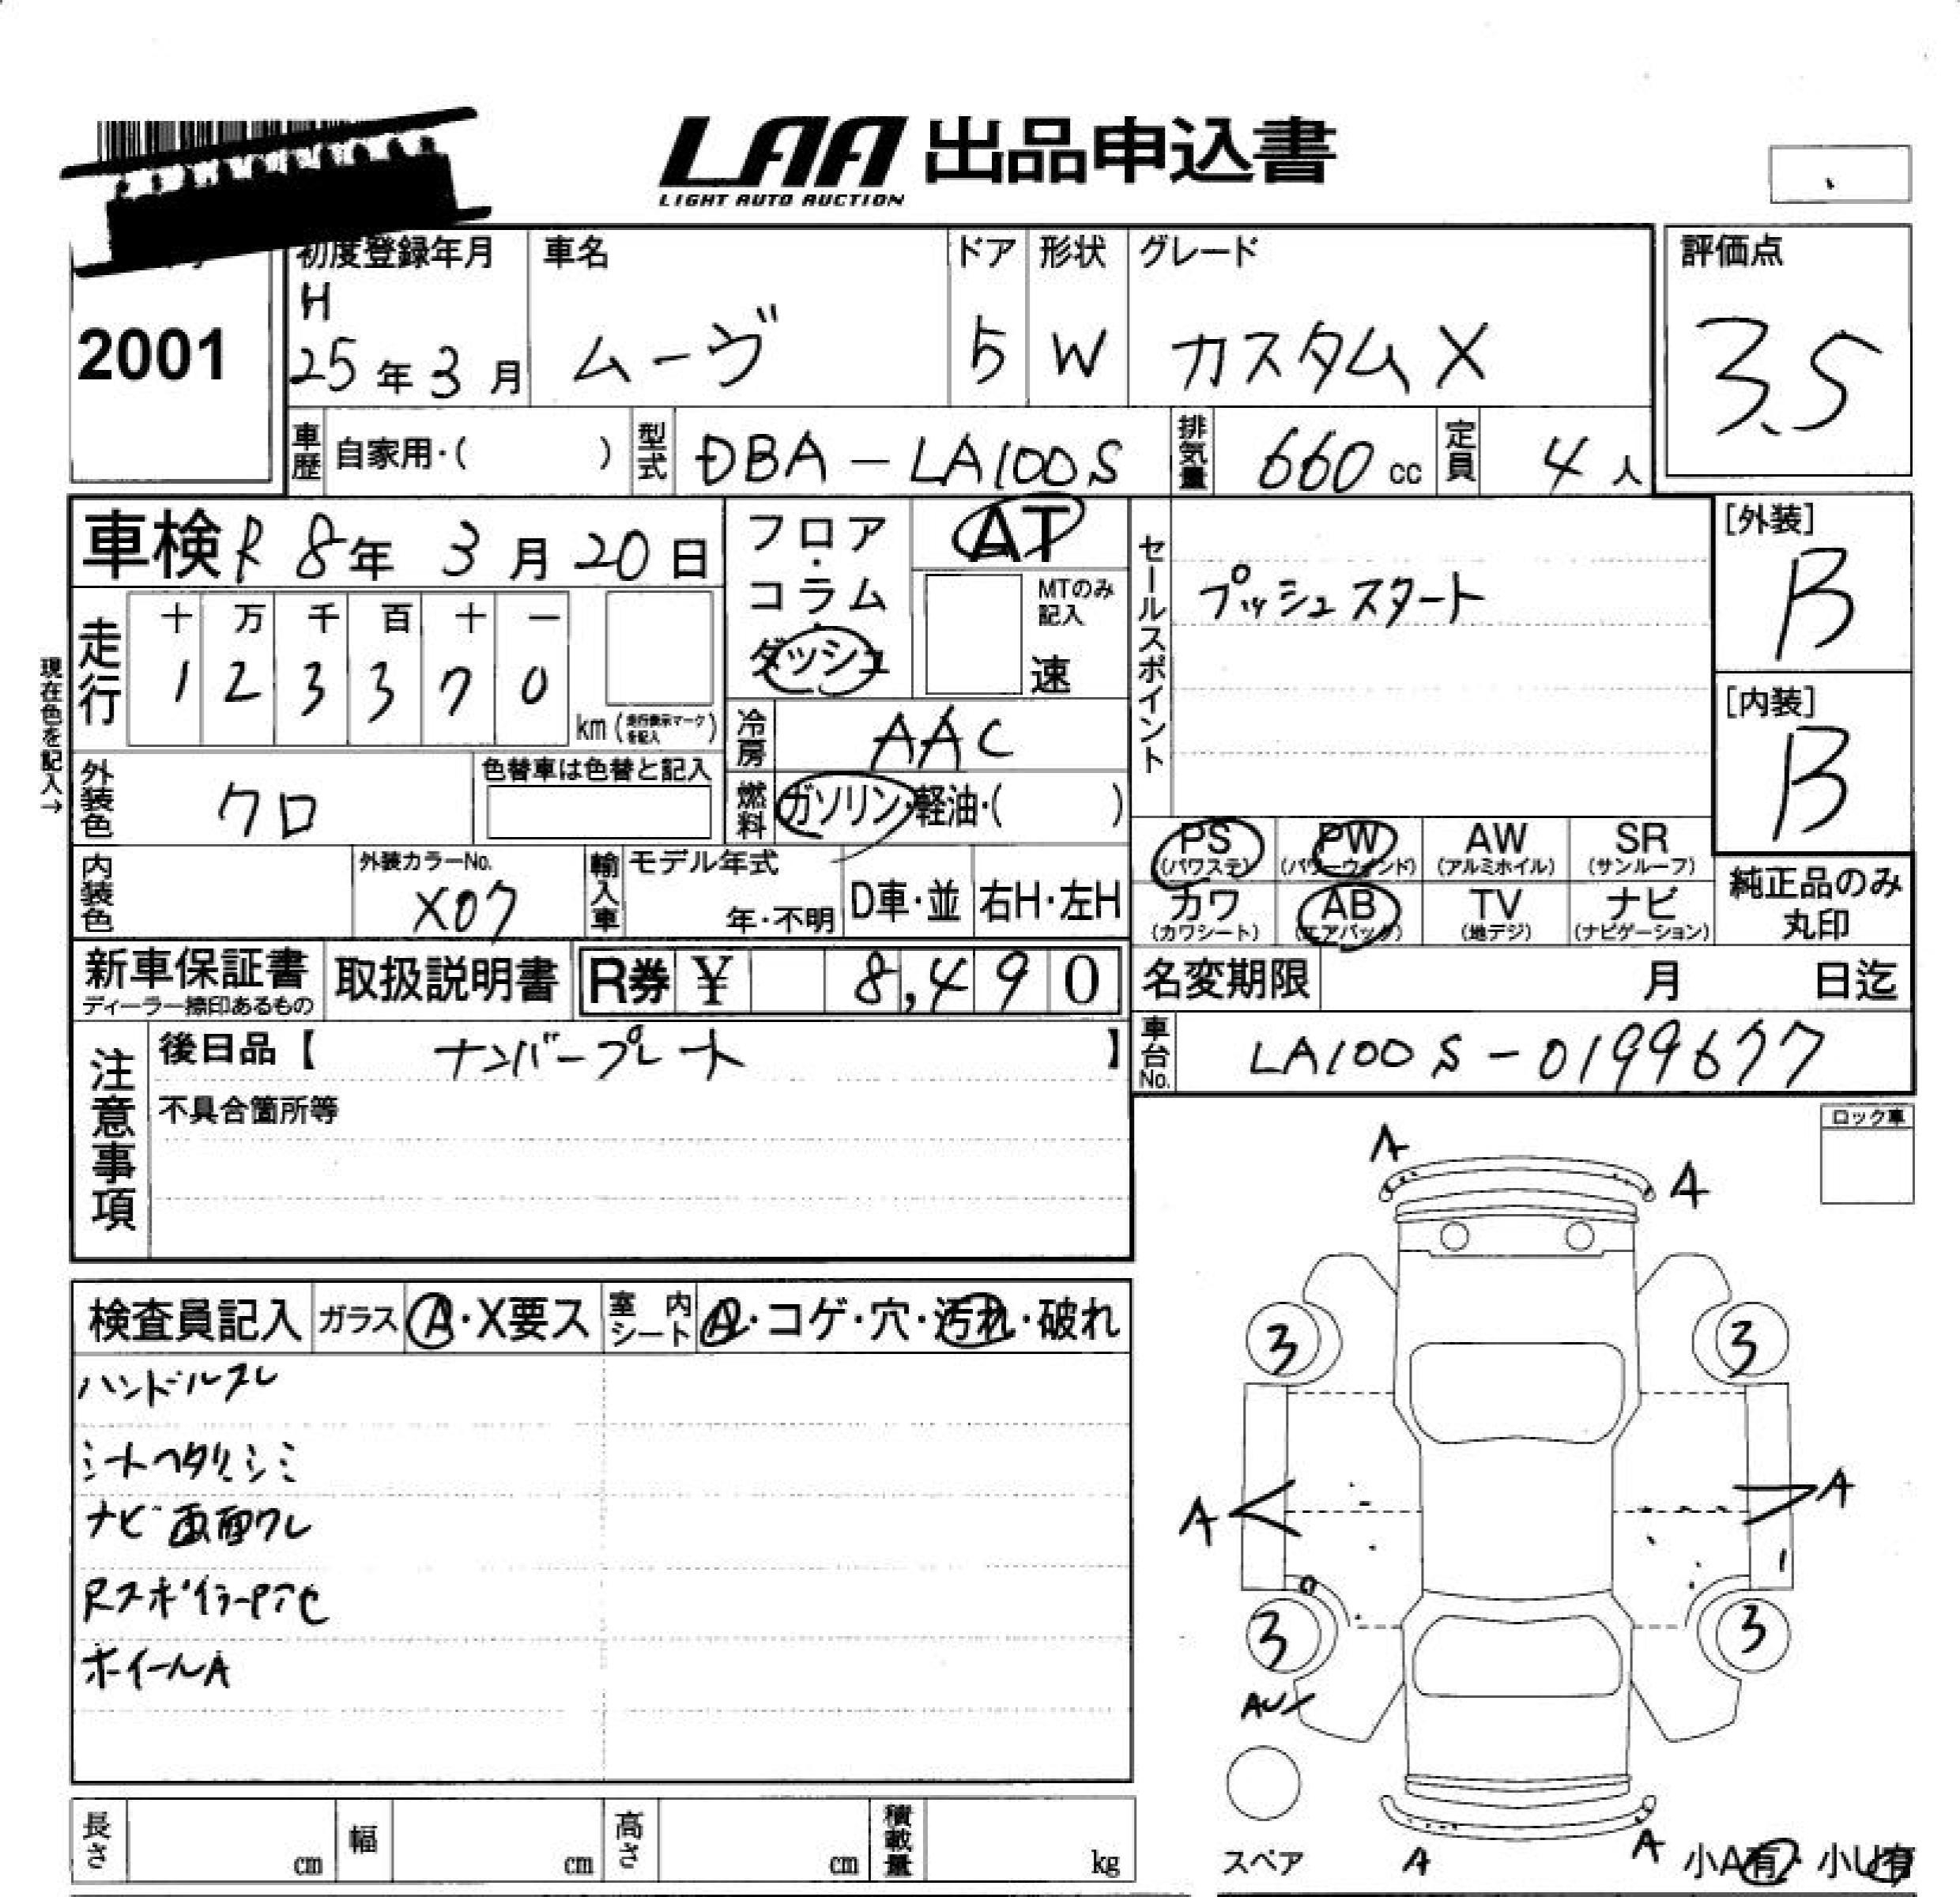 LAA 出品申込書
LIGHT AUTO AUCTION
2001
初度登録年月 車名 ドア 形状 グレード 評価点
H
25年3月 ムーヴ 5 W カスタムX 3.5
車歴 自家用・( ) 型式 DBA-LA100S 排気量 660cc 定員 4人
車検 R8年3月20日 フロア・コラム・ダッシュ AT
MTのみ記入 速
セールスポイント プッシュスタート
[外装] B
[内装] B
現在色を記入→
走行 十 万 千 百 十 一
1 2 3 3 7 0
km (走行表示マークを記入)
冷房 AAC
外装色 クロ 色替車は色替と記入
燃料 ガソリン・軽油・( )
PS (パワステ) PW (パワーウィンド) AW (アルミホイル) SR (サンルーフ)
カワ (カワシート) AB (エアバック) TV (地デジ) ナビ (ナビゲーション)
純正品のみ丸印
内装色 外装カラーNo. X07 輸入車 モデル年式 年・不明 D車・並 右H・左H
新車保証書 ディーラー捺印あるもの 取扱説明書 R券 ¥ 8,490
名変期限 月 日迄
注意事項 後日品【 ナンバープレート 】
車台No. LA100S-0199677
不具合箇所等
ロック車
検査員記入 ガラス A・X要ス 室内シート A・コゲ・穴・汚れ・破れ
ハンドルスレ
シートヘタリ、シミ
ナビ画面ワレ
ホイールA
A
A
3 3
A A
3 3
AU
スペア
A
A
小A有・小U有
長さ cm 幅 cm 高さ cm 積載量 kg